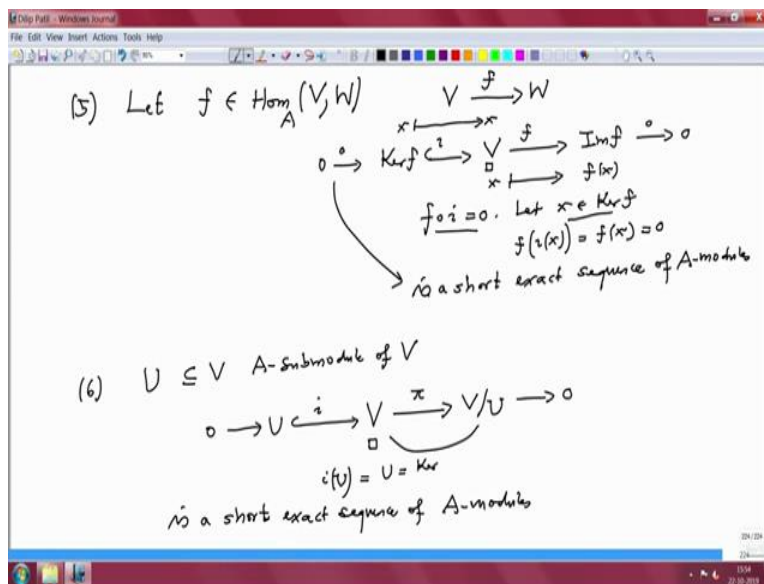 Dilip Patil - Windows Journal
File Edit View Insert Actions Tools Help
(5) Let f ∈ Hom_A(V, W) V →f W
x ↦ x
0 →0 Ker f ↪i V →f Im f →0 0
x ↦ f(x)
f∘i = 0. Let x ∈ Ker f
f(i(x)) = f(x) = 0
is a short exact sequence of A-modules
(6) U ⊆ V A-submodule of V
0 → U ↪i V →π V/U → 0
i(U) = U = Ker
is a short exact sequence of A-modules
224/224
224
15:54
22-10-2019